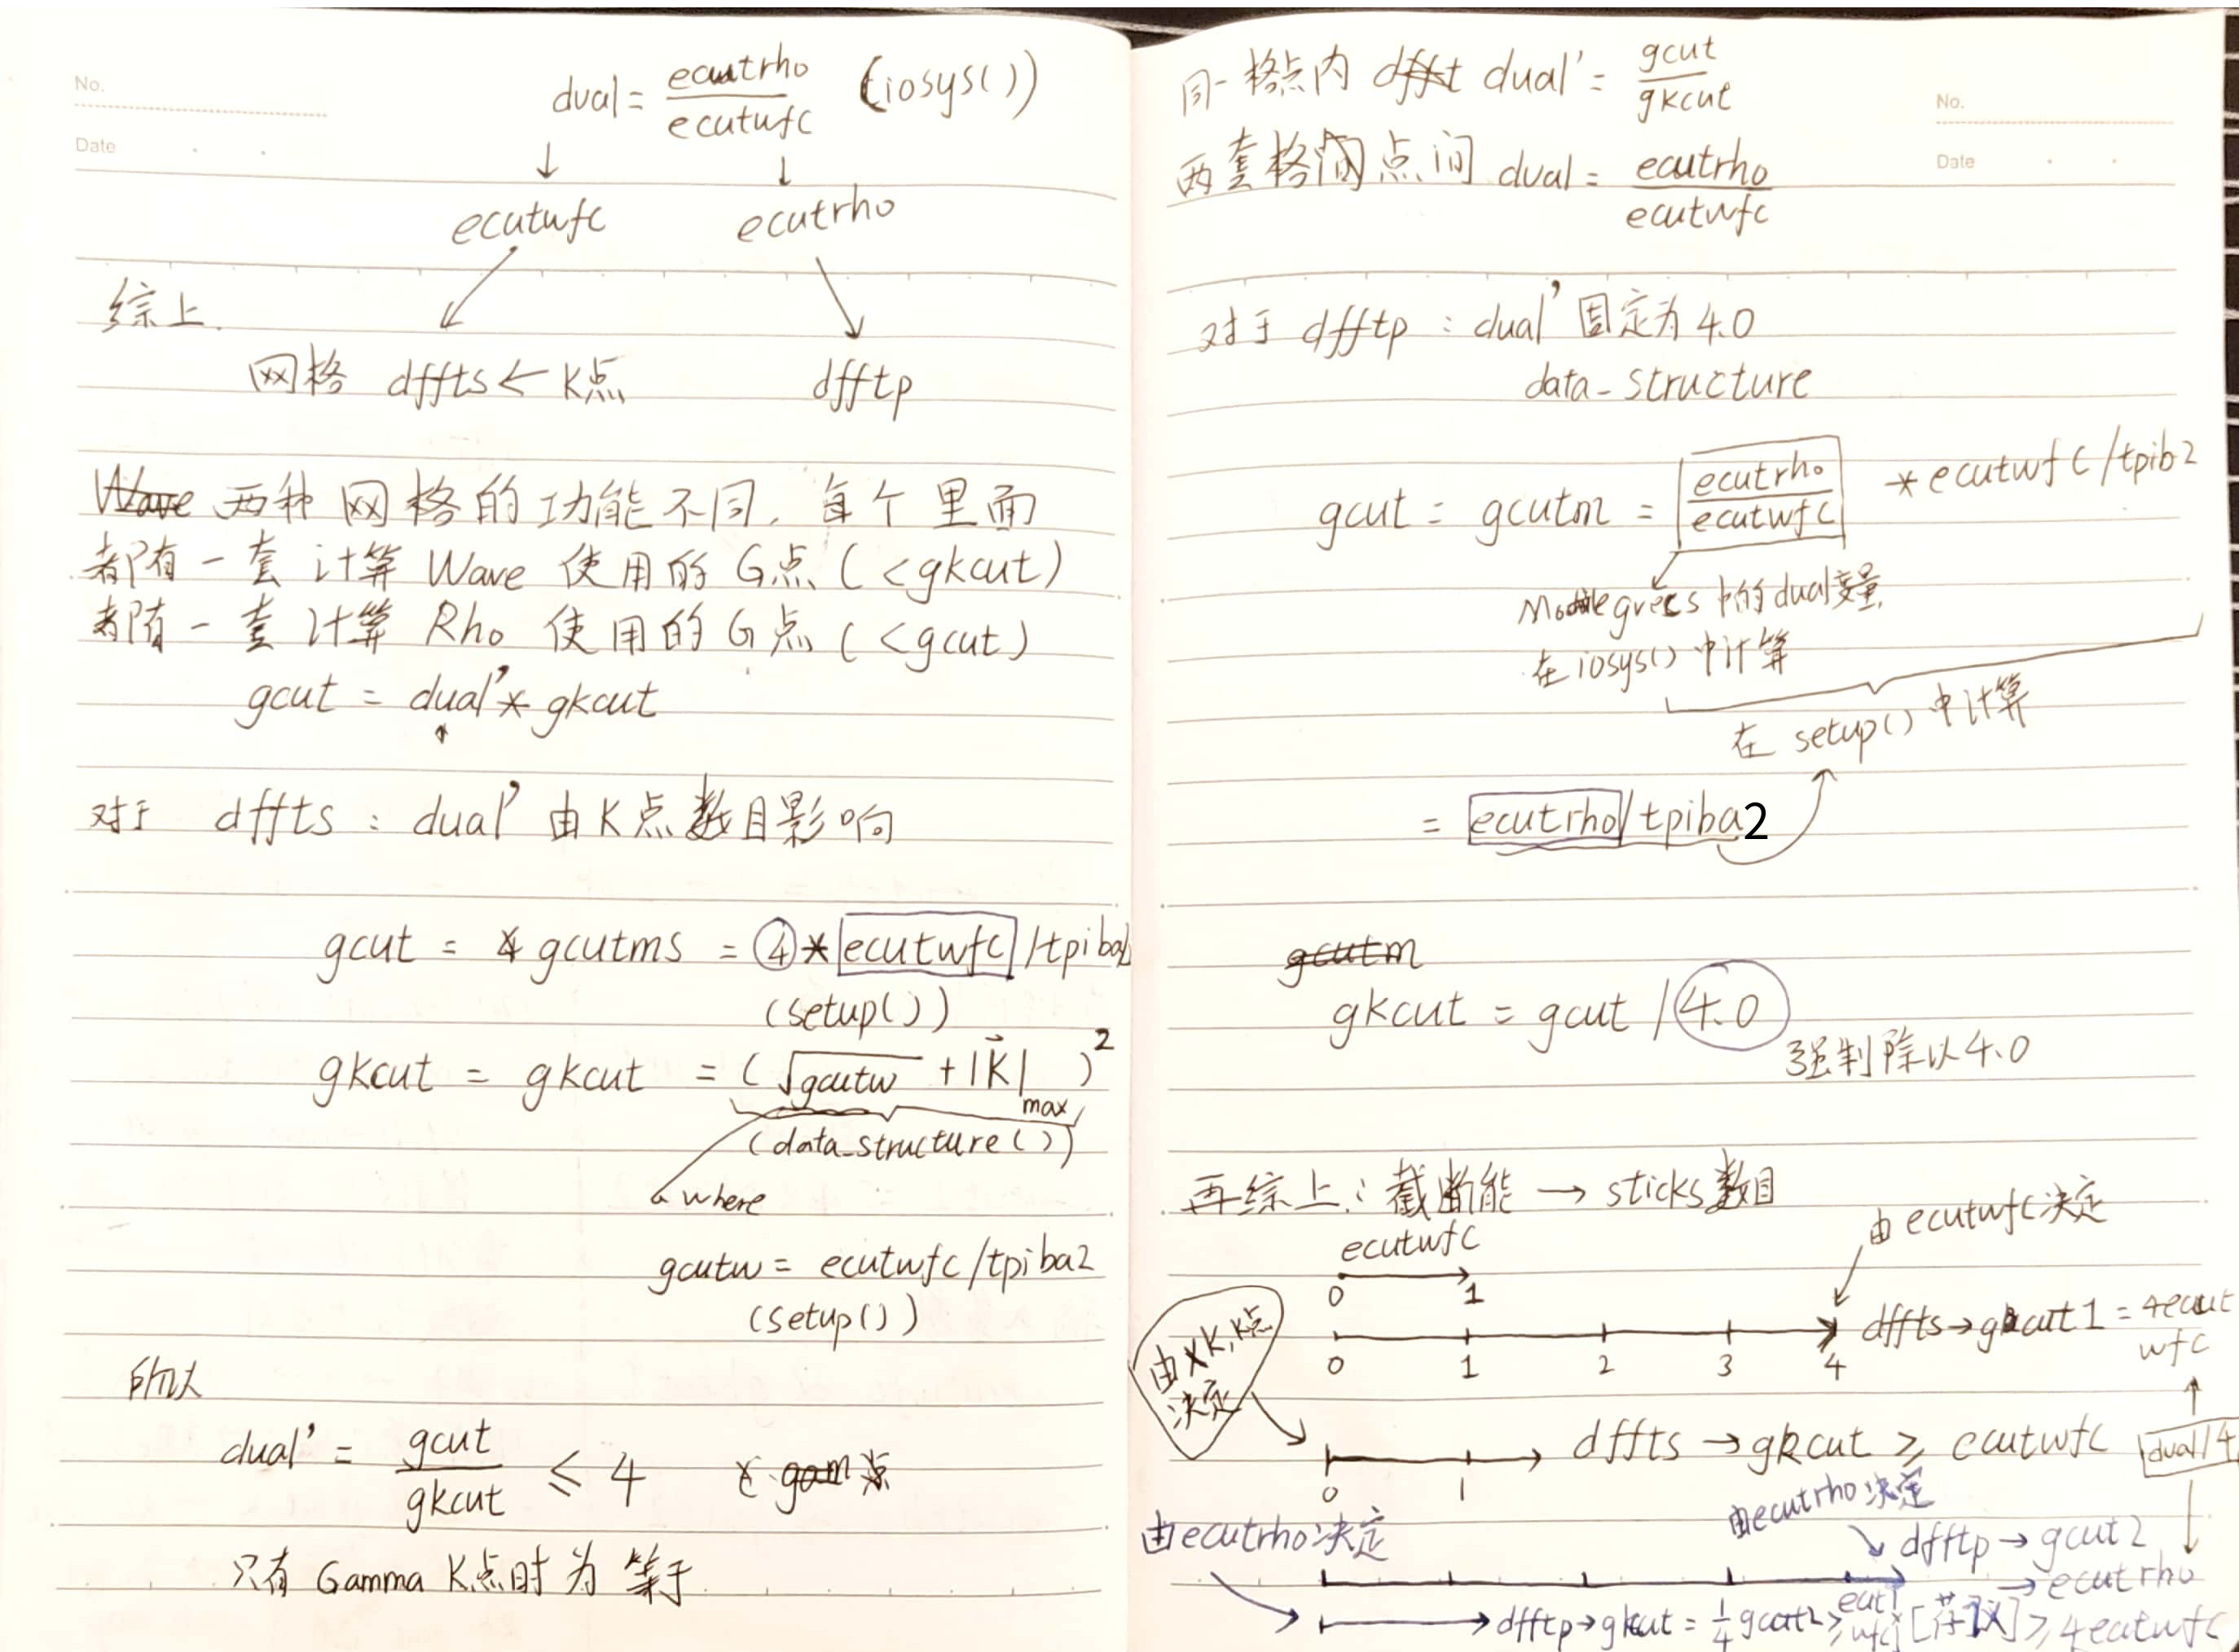 No.
Date
dual = ecutrho / ecutwfc (iosys())
↓ ↓
ecutwfc ecutrho
综上.
网格 dffts ← K点 dfftp
Wave 两种网格的功能不同, 每个里面
都有一套计算 Wave 使用的 G点 ( <gkcut)
都有一套计算 Rho 使用的 G点 ( <gcut)
gcut = dual' * gkcut
对于 dffts : dual' 由K点数目影响
gcut = gcutms = 4 * ecutwfc /tpiba2
(setup())
gkcut = gkcut = ( √gcutw + |K|max )²
(data_structure())
where
gcutw = ecutwfc/tpiba2
(setup())
所以
dual' = gcut / gkcut ≤ 4
只有 Gamma K点时 为 等于.
No.
Date
同一格点内 dual' = gcut / gkcut
两套格点间 dual = ecutrho / ecutwfc
对于 dfftp : dual' 固定为 4.0
data_structure
gcut = gcutm = ecutrho / ecutwfc * ecutwfc/tpib2
Module gvecs 中的dual变量,
在 iosys() 中计算
在 setup() 中计算
= ecutrho/tpiba2
gcutm
gkcut = gcut / 4.0
强制除以4.0
再综上: 截断能 → sticks数目
由 ecutwfc决定
ecutwfc
0 1
dffts→gkcut1 = 4ecutwfc
0 1 2 3 4
由XK,K点
决定
dffts → gkcut ≥ ecutwfc
dual/4
0 1
由ecutrho决定
由ecutrho决定
dfftp → gcut2
→ ecutrho
dfftp→gkcut = 1/4 gcut2 ≥ ≥ 4ecutwfc